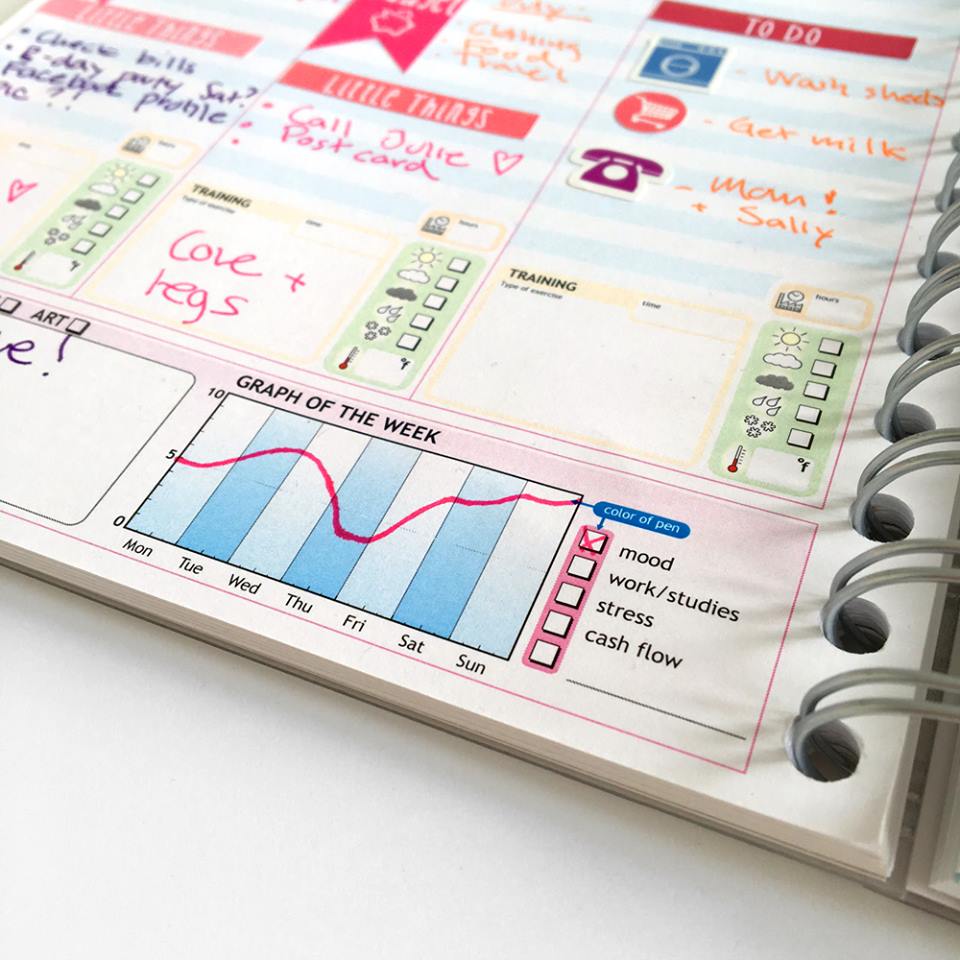 LITTLE THINGS
• Check bills
• B-day party Sat?
Facebook profile
LITTLE THINGS
• Call Julie ♡
• Post card
•
Clothing
Food
Travel
TO DO
- Wash sheets
- Get milk
- Mom!
+ Sally
TRAINING
Type of exercise
time
hours
Core +
legs
°F
TRAINING
Type of exercise
time
hours
°F
ART
GRAPH OF THE WEEK
10
5
0
Mon
Tue
Wed
Thu
Fri
Sat
Sun
color of pen
mood
work/studies
stress
cash flow